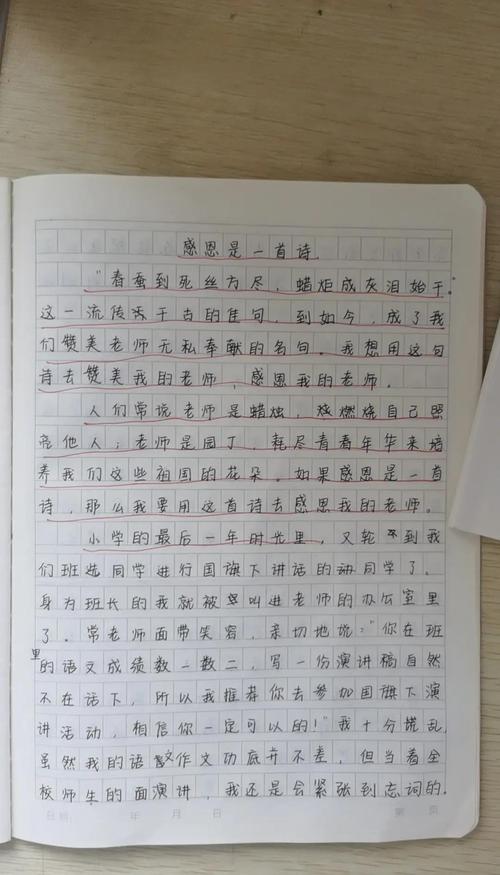 感恩是一首诗
“春蚕到死丝方尽，蜡炬成灰泪始干。
这一流传千古的佳句，到如今，成了我
们赞美老师无私奉献的名句。我想用这句
诗去赞美我的老师，感恩我的老师。
人们常说老师是蜡烛，燃烧自己照
亮他人；老师是园丁，耗尽青春年华来培
养我们这些祖国的花朵。如果感恩是一首
诗，那么我要用这首诗去感恩我的老师。
小学的最后一年时光里，又轮到我
们班选同学进行国旗下讲话的同学了。
身为班长的我就被叫进老师的办公室里
了。常老师面带笑容，亲切地说：“你在班
里的语文成绩数一数二，写一份演讲稿自然
不在话下，所以我推荐你去参加国旗下演
讲活动，相信你一定可以的！”我十分慌乱，
虽然我的语文作文功底并不差，但当着全
校师生的面演讲，我还是会紧张到忘词的.
日期： 年 月 日 第 页